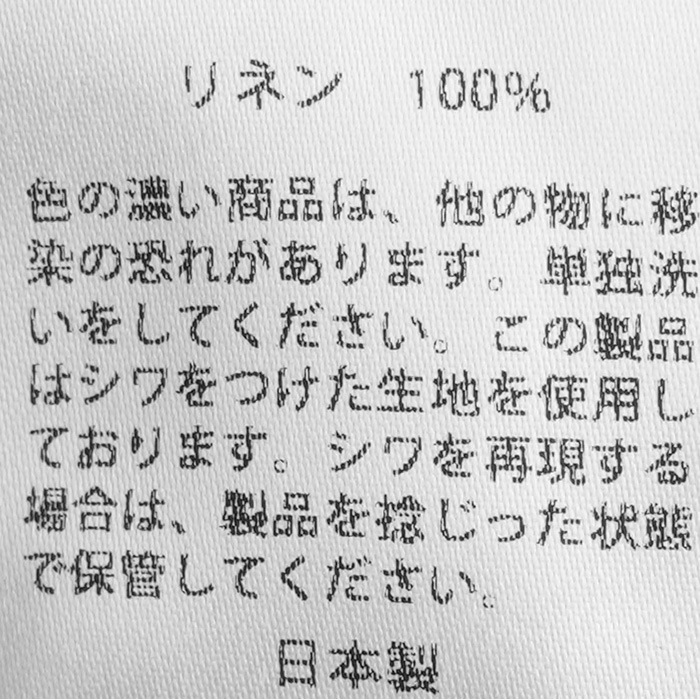 リネン　100%
色の濃い商品は、他の物に移
染の恐れがあります。単独洗
いをしてください。この製品
はシワをつけた生地を使用し
ております。シワを再現する
場合は、製品を捻じった状態
で保管してください。
日本製